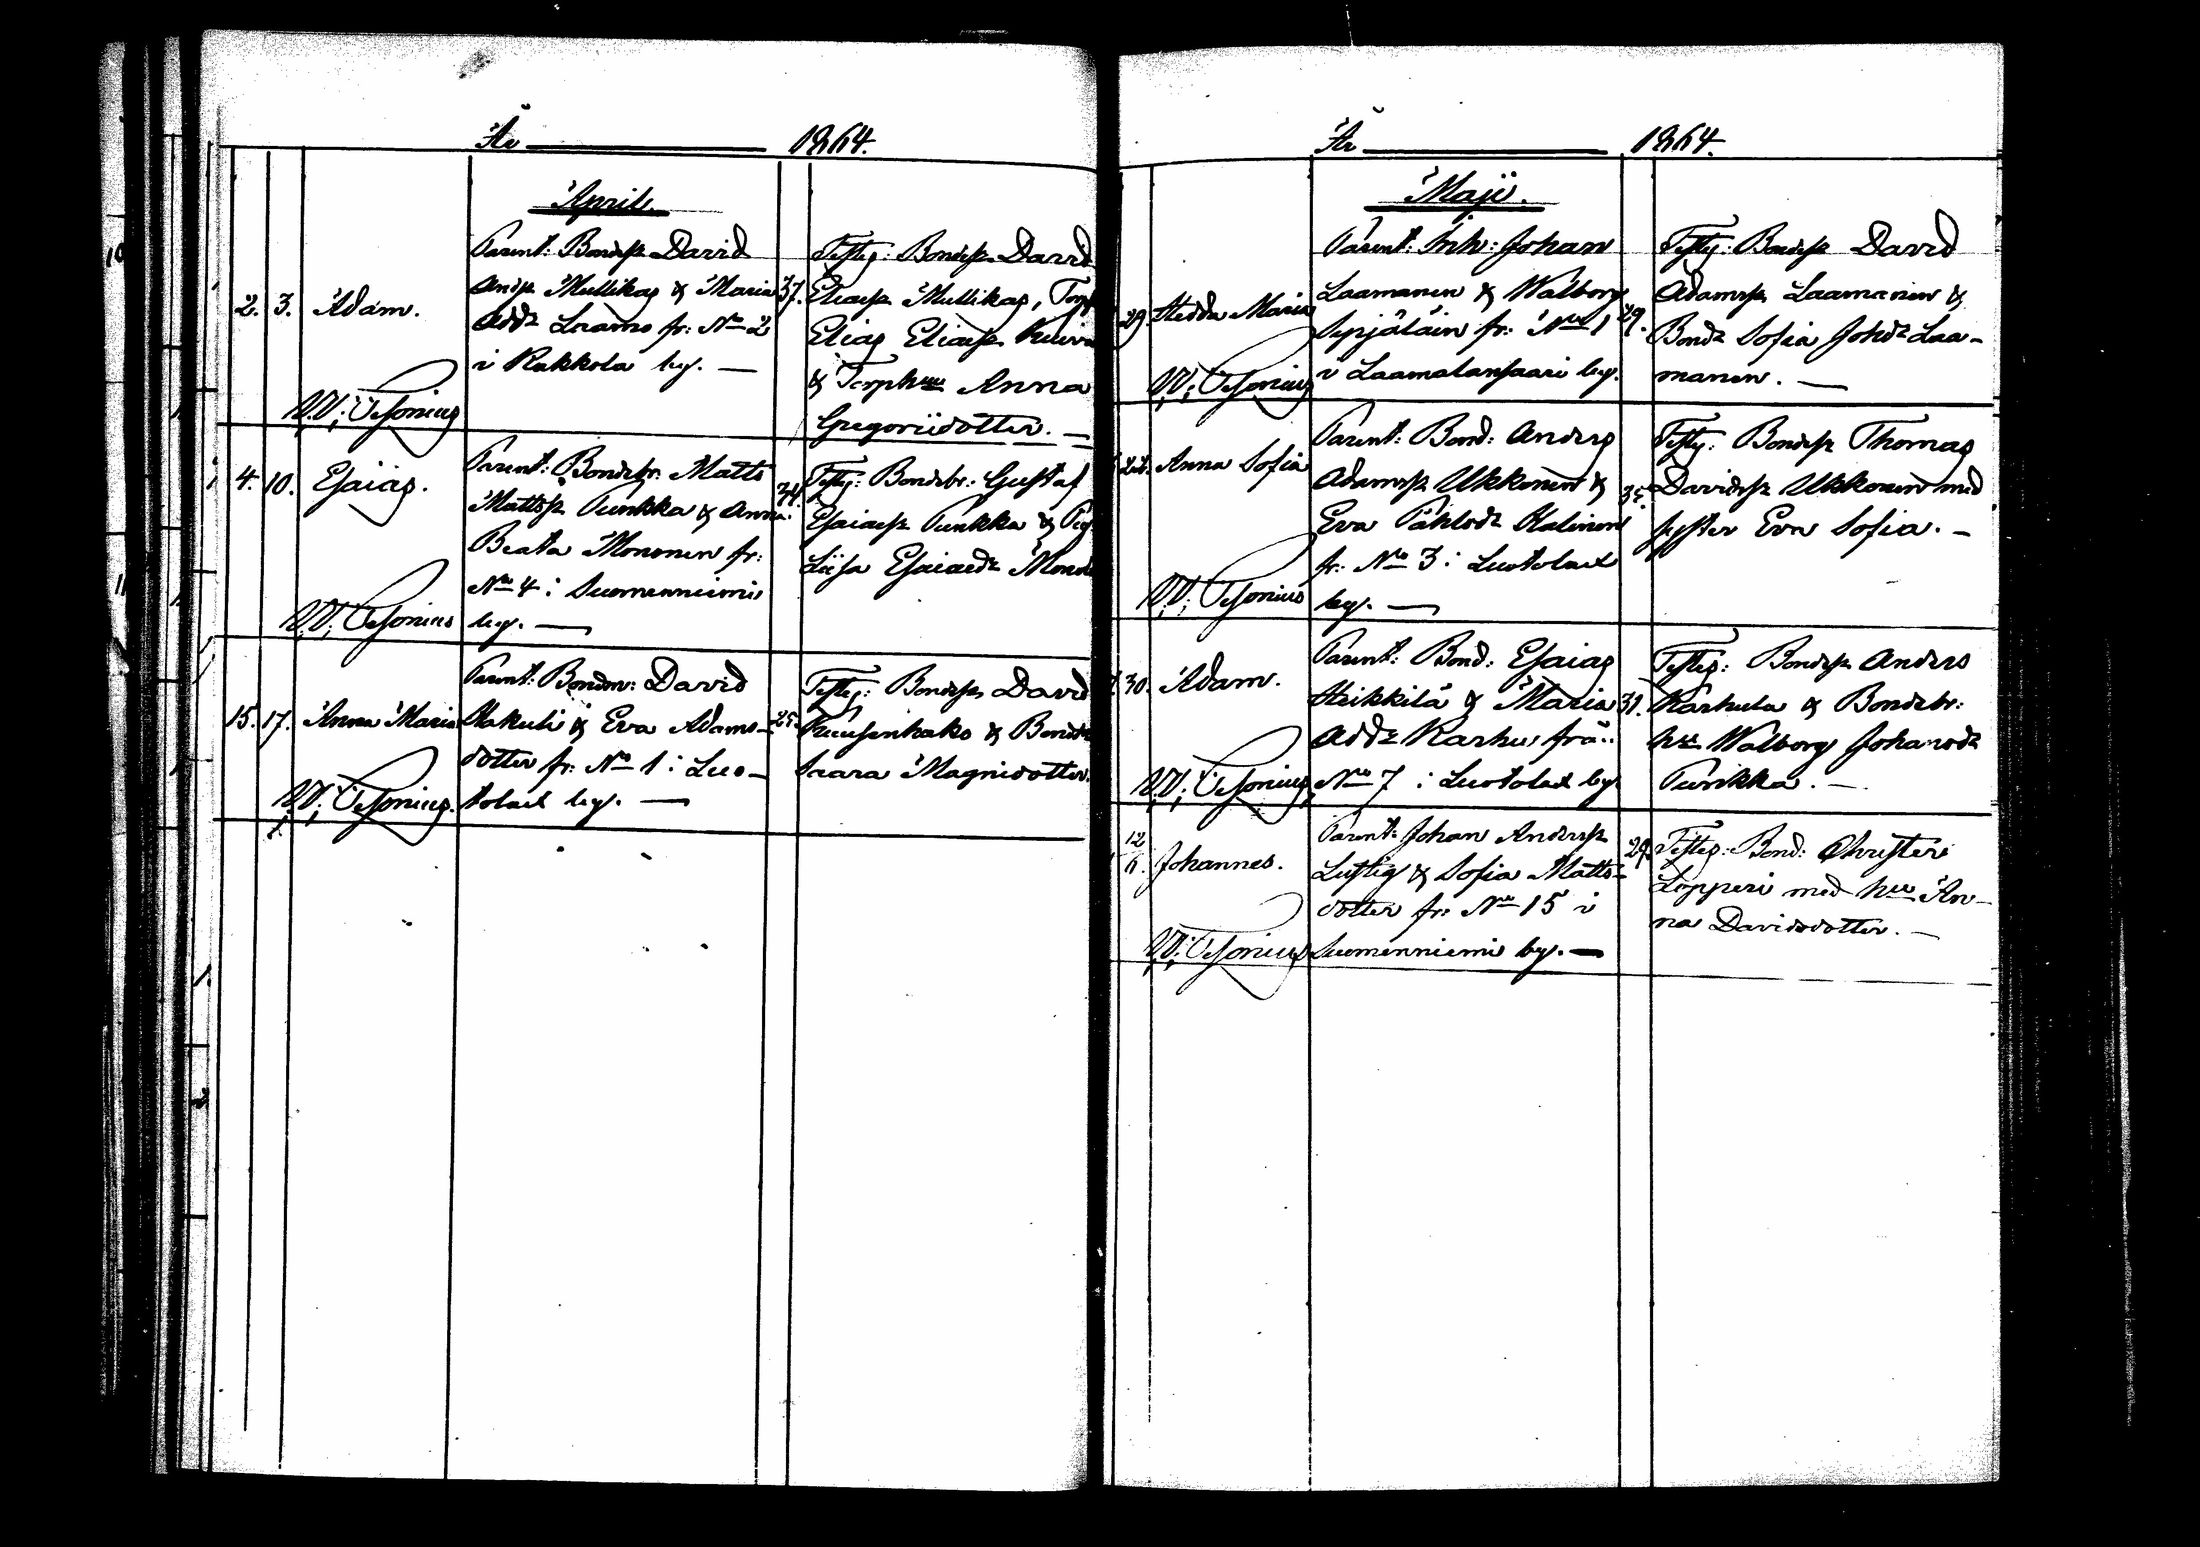 År 1864.
April.
2. 3. Adam.
Parent: Bondess David
Andss Mullikas & Maria
Add: Laamo fr: No 2
i Kukkola by. —
37.
Testes: Bondess David
Eliaess Mullikas,
Elias Eliaess
& Torphuu Anna
Gregoriidotter. —
4. 10. Esaias.
Parent: Bondebr: Matts
Mattss Punkka & Anna
Beata Mononen fr:
No 4 i Suomenniemi
by. —
34.
Testes: Bondebr: Gustaf
Esaiaess Punkka &
Lisa Esaiaed:
15. 17. Anna Maria
Parent: Bondm: David
Hakuli & Eva Adams-
dotter fr: No 1 i Luo-
tolax by. —
25.
Testes: Bondess David
Kuusenhako &
Saara Magnidotter.
År 1864.
Maji.
29. Hedda Maria
Parent: Inh: Johan
Laamanen & Walborg
fr: No 1
i Laamalansaari by.
29.
Testes: Bondess David
Adamss Laamanen &
Bond: Sofia Johd: Laa-
manen. —
22. Anna Sofia
Parent: Bond: Anders
Adamss Ukkonen &
Eva Påhlsd: Halinen
fr: No 3 i Luotolax
by. —
35.
Testes: Bondess Thomas
Davidss Ukkonen med
syster Eva Sofia. —
30. Adam.
Parent: Bond: Esaias
Heikkilä & Maria
Add: Karhu från
No 7 i Luotolax by.
31.
Testes: Bondess Anders
Karhula & Bondebr:
hu Walborg Johansd:
Punkka. —
12
6. Johannes.
Parent: Johan Anderss
Lustig & Sofia Matts-
dotter fr: No 15 i
Suomenniemi by. —
29.
Testes: Bond: Christer
Lopperi med huu An-
na Davidsdotter. —